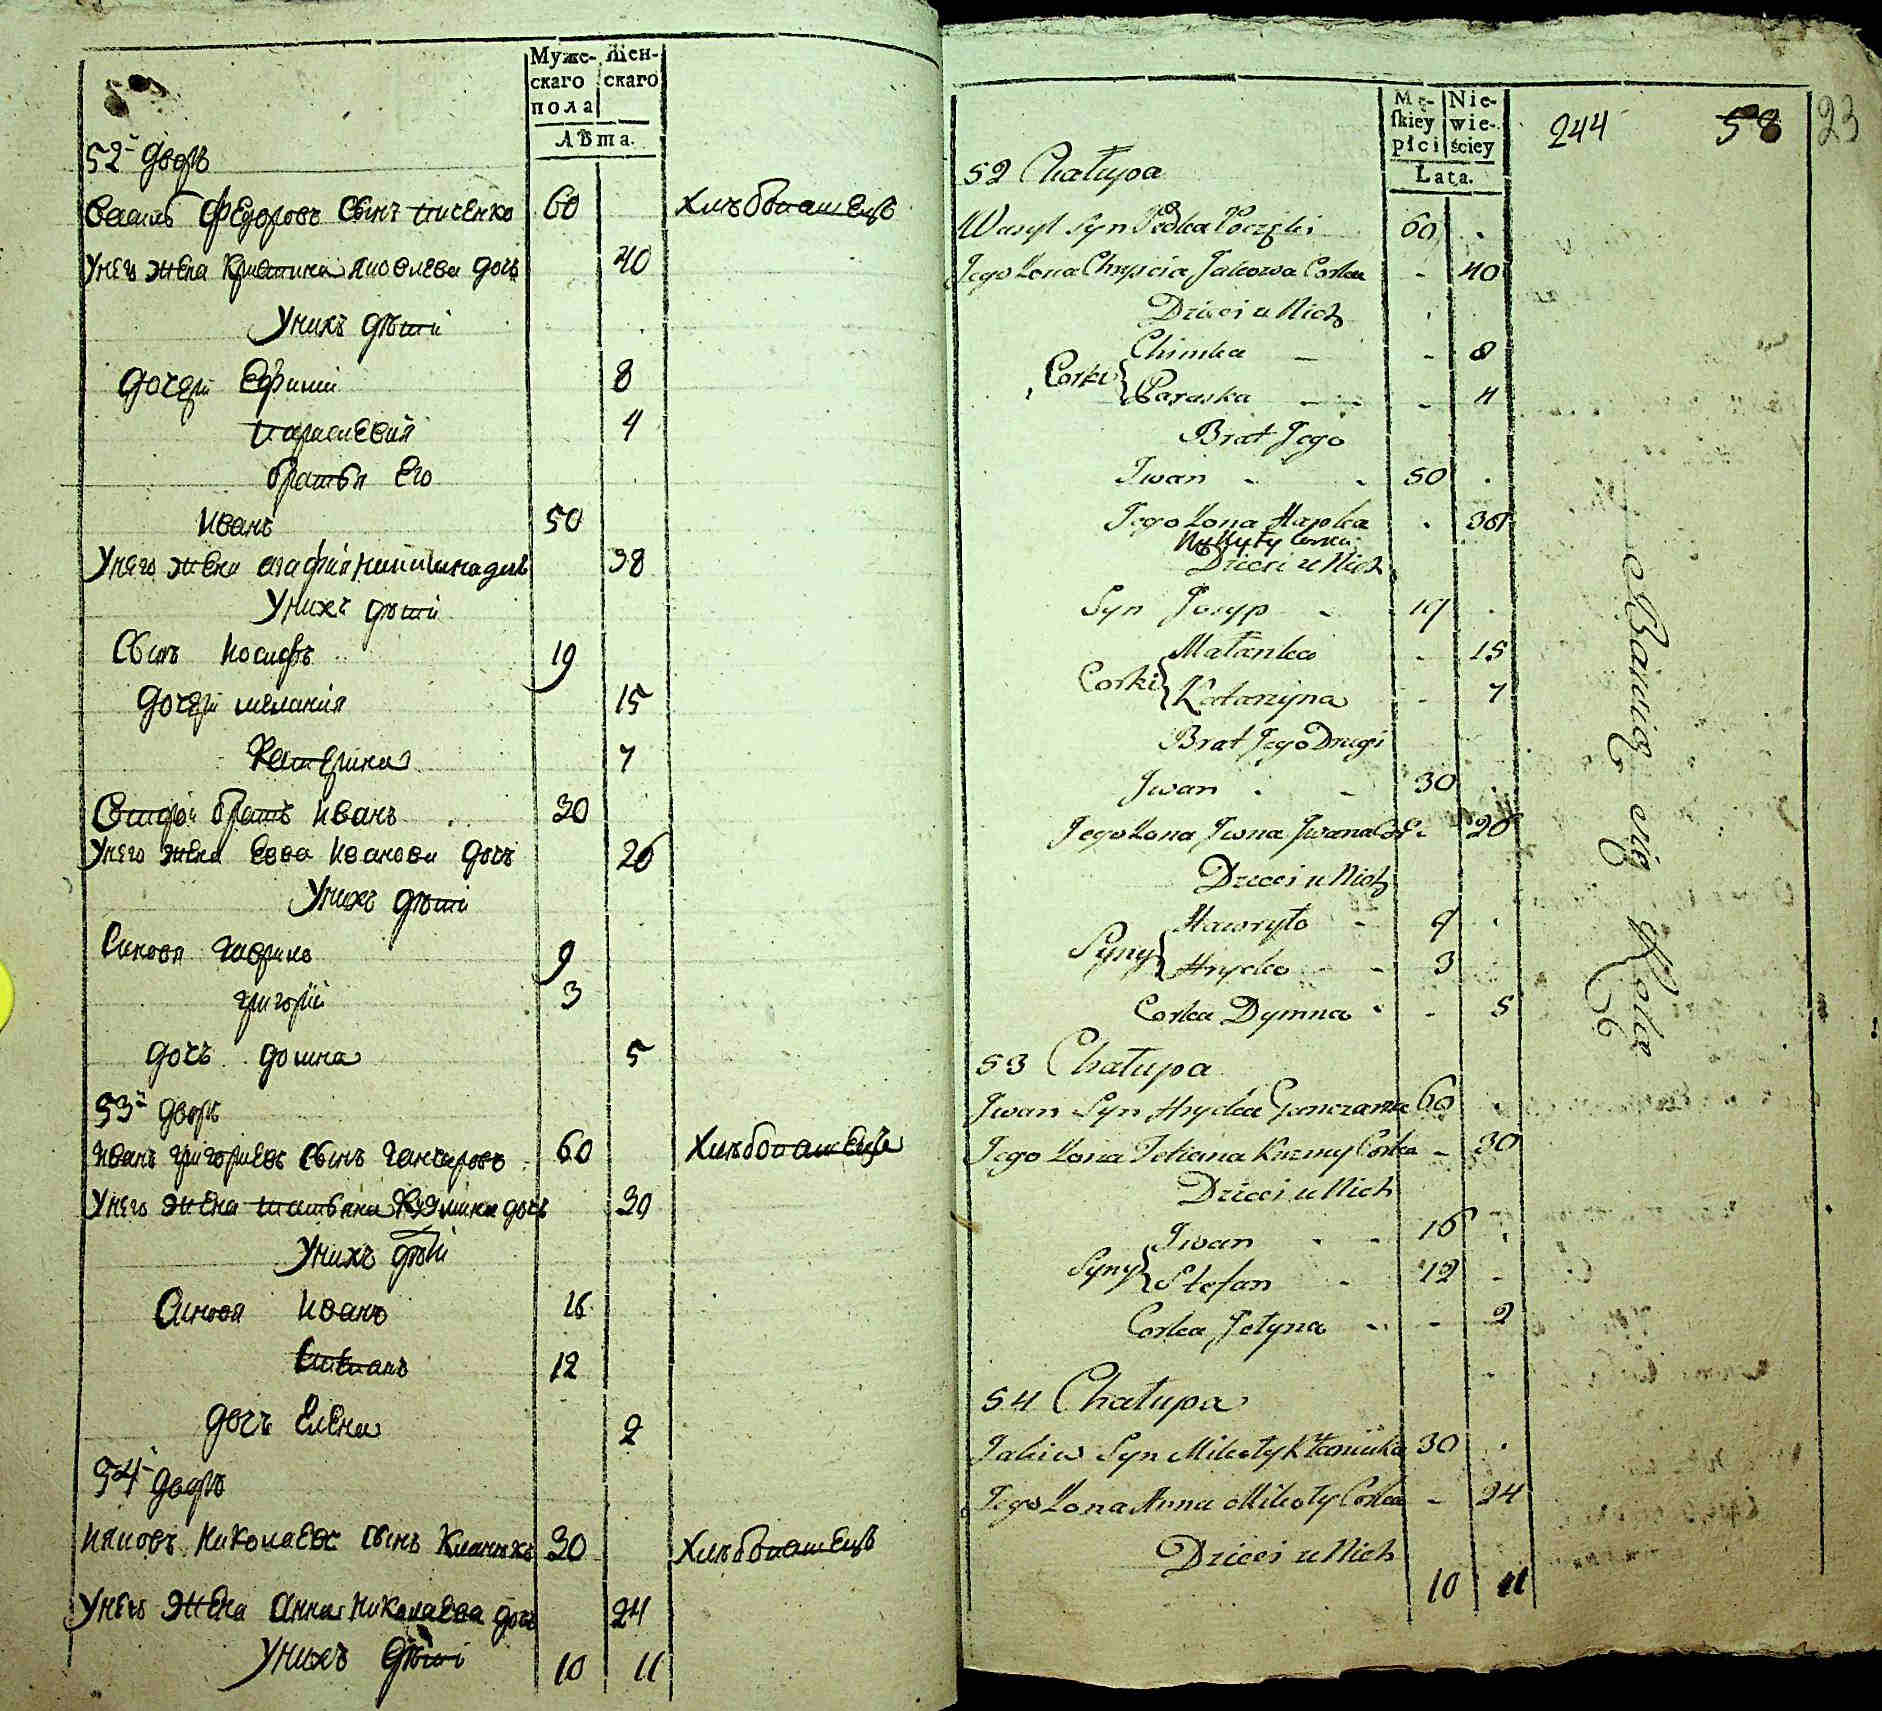 Муже-
скаго
пола
Жен-
скаго
Лѣта.
52й дворъ
Василь Федоровъ Сынъ 60 Хлѣбопашецъ
У него жена Кристина Яковлева дочь 40
У нихъ дѣти
дочери Ефимия 8
Параскевия 4
братья Его
Иванъ 50
У него жена Агафия Никитина дочь 38
У нихъ дѣти
Сынъ Иосифъ 19
дочери мелания 15
Катерина 7
Вторій братъ Иванъ 30
У него жена Евва Иванова дочь 26
У нихъ дѣти
Синовя гаврило 9
григорій 3
дочъ домна 5
53й дворъ
Иванъ григориевъ Сынъ ганчаровъ 60 Хлѣбопашецъ
У него жена татьяна Кузмина дочь 30
У нихъ дѣти
Синовя Иванъ 16
Степанъ 12
дочъ Елена 2
54й дворъ
Яковъ Николаевъ Сынъ 30 Хлѣбопашецъ
У него жена Анна Николаева дочь 24
У нихъ дѣти
10 11
Mę-
skiey
płci
Nie-
wie-
ściey
Lata.
244 58 23
52 Chałupa
Wasyl Syn Fedka 60 .
Jego Żona Chrycia Jakowa Corka - 40
Dzieci u Nich
Corki { Chimka - - 8
Paraska - - - 4
Brat Jego
Iwan - - 50 .
Jego Żona Hapka . 38
Mykyty Corka
Dzieci u Nich
Syn Josyp - 19 .
Corki { Małanka - 15
Katarzyna - 7
Brat Jego Drugi
Iwan . - 30 .
Jego Żona Iwana Cor: - 26
Dzieci u Nich
Syny { Hawryło - 9 .
Hryćko - - 3
Corka Dymna - - 5
53 Chałupa
Iwan Syn Hryćka Ganczara 60
Jego Żona Tetiana Kuzmy Corka - 30
Dzieci u Nich
Syny { Iwan - - 16 .
Stefan - 12 -
Corka Jełyna - - 2
54 Chałupa
Jakiw Syn Mikoły Kłaniuka 30 .
Jego Żona Anna Mikoły Corka - 24
Dzieci u Nich
10 11